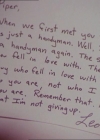 When we first met you
s just a handyman. Well,
handyman again. The
u fell in love with.
y who fell in love with
you are, not who I
u are. Remember that
t I'm not giving up.